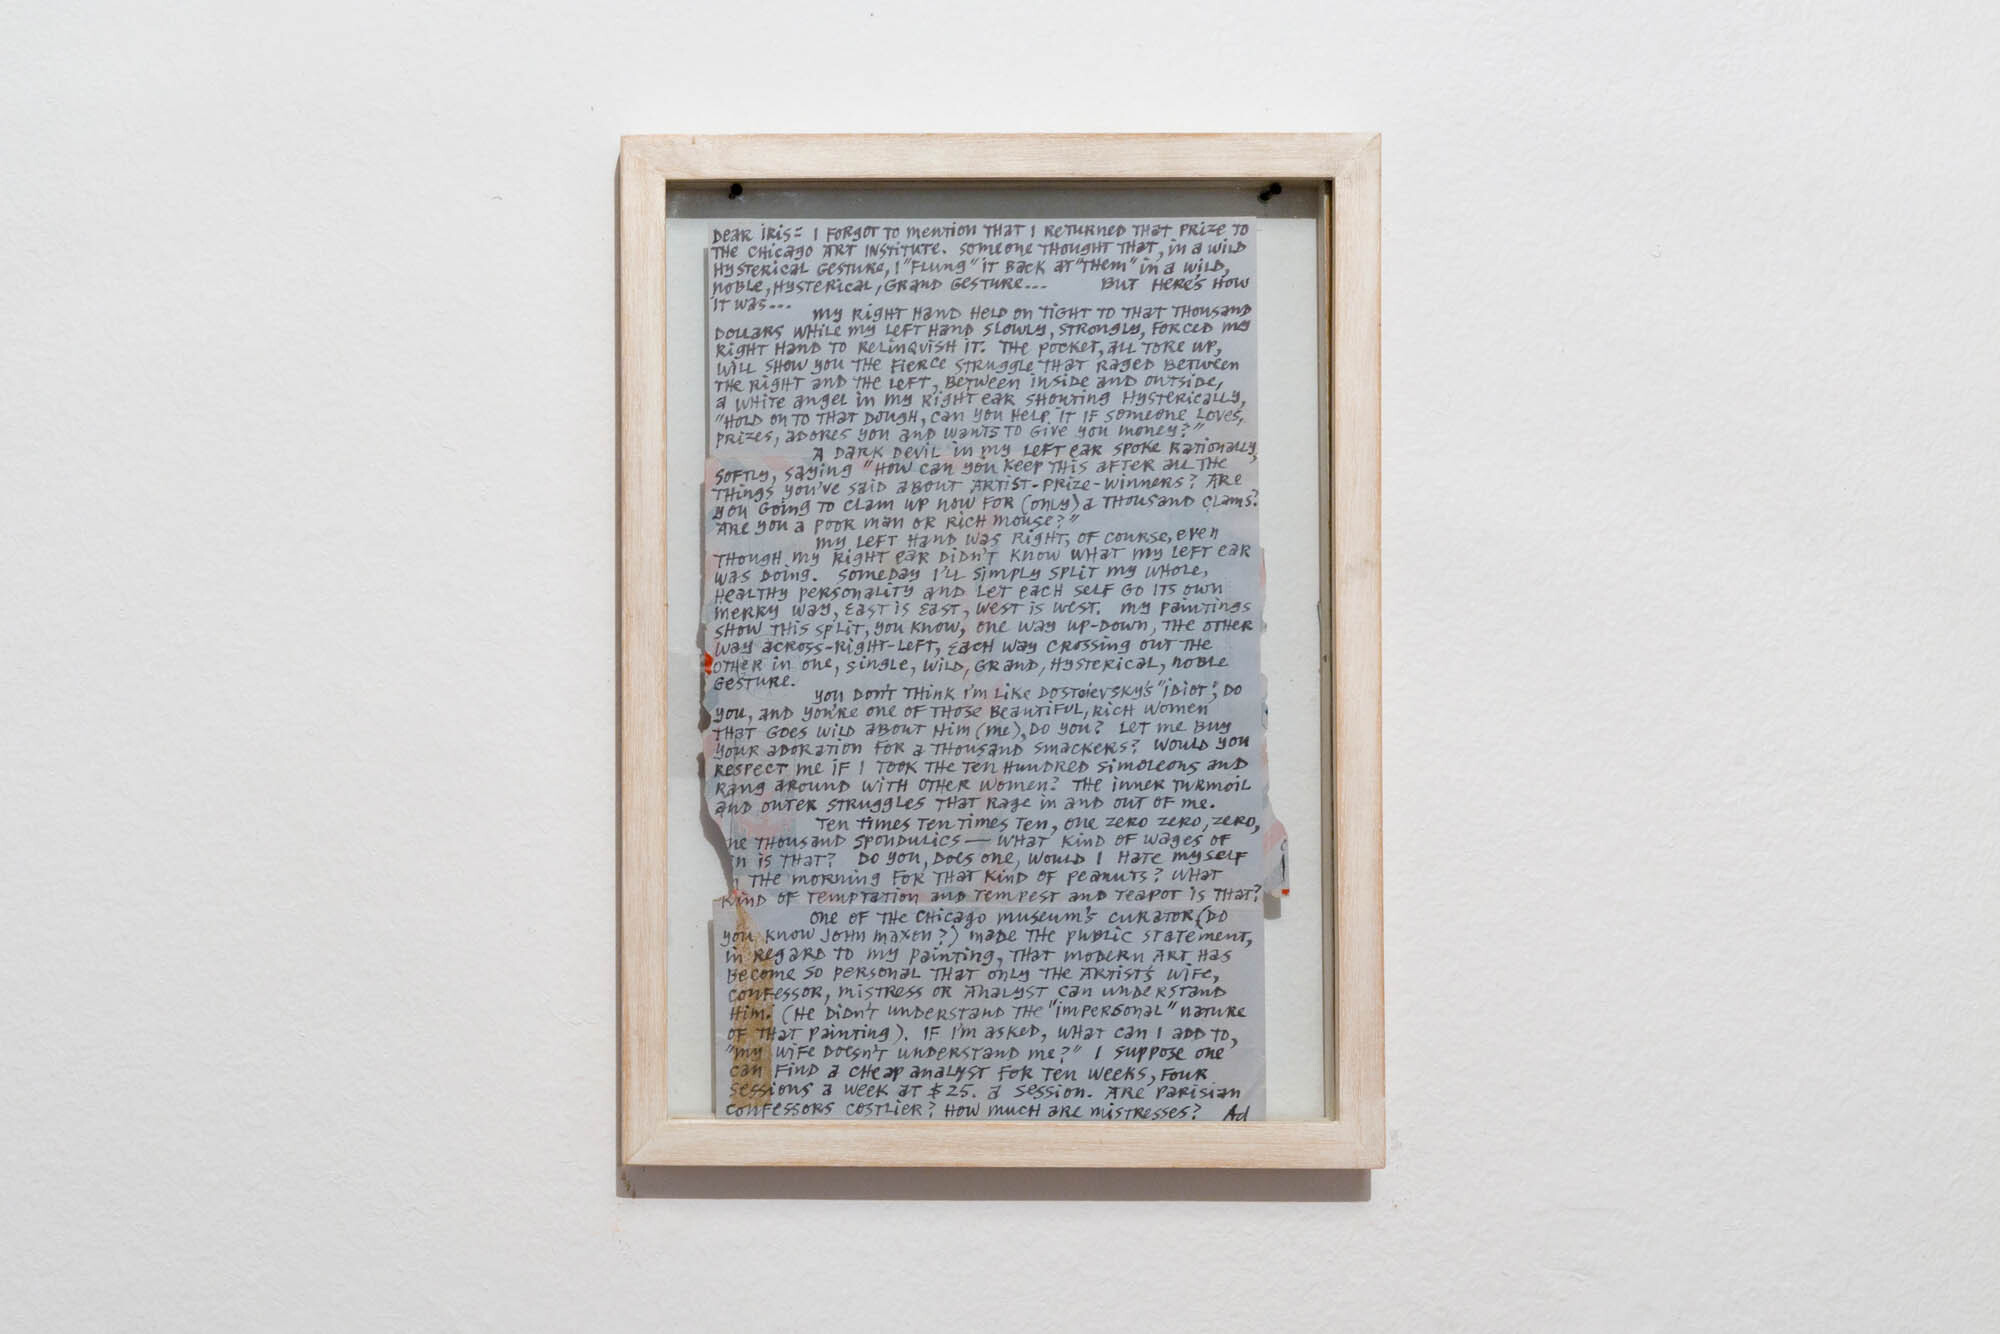 DEAR IRIS= I FORGOT TO MENTION THAT I RETURNED THAT PRIZE TO
THE CHICAGO ART INSTITUTE. SOMEONE THOUGHT THAT, IN A WILD
HYSTERICAL GESTURE, I "FLUNG" IT BACK AT "THEM" IN A WILD,
NOBLE, HYSTERICAL, GRAND GESTURE... BUT HERE'S HOW
IT WAS...
MY RIGHT HAND HELD ON TIGHT TO THAT THOUSAND
DOLLARS WHILE MY LEFT HAND SLOWLY, STRONGLY, FORCED MY
RIGHT HAND TO RELINQUISH IT. THE POCKET, ALL TORE UP,
WILL SHOW YOU THE FIERCE STRUGGLE THAT RAGED BETWEEN
THE RIGHT AND THE LEFT, BETWEEN INSIDE AND OUTSIDE,
A WHITE ANGEL IN MY RIGHT EAR SHOUTING HYSTERICALLY,
"HOLD ON TO THAT DOUGH, CAN YOU HELP IT IF SOMEONE LOVES,
PRIZES, ADORES YOU AND WANTS TO GIVE YOU MONEY?"
A DARK DEVIL IN MY LEFT EAR SPOKE RATIONALLY,
SOFTLY, SAYING "HOW CAN YOU KEEP THIS AFTER ALL THE
THINGS YOU'VE SAID ABOUT ARTIST-PRIZE-WINNERS? ARE
YOU GOING TO CLAM UP NOW FOR (ONLY) A THOUSAND CLAMS?
ARE YOU A POOR MAN OR RICH MOUSE?"
MY LEFT HAND WAS RIGHT, OF COURSE, EVEN
THOUGH MY RIGHT EAR DIDN'T KNOW WHAT MY LEFT EAR
WAS DOING. SOMEDAY I'LL SIMPLY SPLIT MY WHOLE,
HEALTHY PERSONALITY AND LET EACH SELF GO ITS OWN
MERRY WAY, EAST IS EAST, WEST IS WEST. MY PAINTINGS
SHOW THIS SPLIT, YOU KNOW, ONE WAY UP-DOWN, THE OTHER
WAY ACROSS-RIGHT-LEFT, EACH WAY CROSSING OUT THE
OTHER IN ONE, SINGLE, WILD, GRAND, HYSTERICAL, NOBLE
GESTURE.
YOU DON'T THINK I'M LIKE DOSTOIEVSKY'S "IDIOT", DO
YOU, AND YOU'RE ONE OF THOSE BEAUTIFUL, RICH WOMEN
THAT GOES WILD ABOUT HIM (ME), DO YOU? LET ME BUY
YOUR ADORATION FOR A THOUSAND SMACKERS? WOULD YOU
RESPECT ME IF I TOOK THE TEN HUNDRED SIMOLEONS AND
RANG AROUND WITH OTHER WOMEN? THE INNER TURMOIL
AND OUTER STRUGGLES THAT RAGE IN AND OUT OF ME.
TEN TIMES TEN TIMES TEN, ONE ZERO ZERO, ZERO,
NE THOUSAND SPONDULICS — WHAT KIND OF WAGES OF
N IS THAT? DO YOU, DOES ONE, WOULD I HATE MYSELF
THE MORNING FOR THAT KIND OF PEANUTS? WHAT
KIND OF TEMPTATION AND TEMPEST AND TEAPOT IS THAT?
ONE OF THE CHICAGO MUSEUM'S CURATOR (DO
YOU KNOW JOHN MAXON?) MADE THE PUBLIC STATEMENT,
IN REGARD TO MY PAINTING, THAT MODERN ART HAS
BECOME SO PERSONAL THAT ONLY THE ARTIST'S WIFE,
CONFESSOR, MISTRESS OR ANALYST CAN UNDERSTAND
HIM. (HE DIDN'T UNDERSTAND THE "IMPERSONAL" NATURE
OF THAT PAINTING). IF I'M ASKED, WHAT CAN I ADD TO,
"MY WIFE DOESN'T UNDERSTAND ME?" I SUPPOSE ONE
CAN FIND A CHEAP ANALYST FOR TEN WEEKS, FOUR
SESSIONS A WEEK AT $25. A SESSION. ARE PARISIAN
CONFESSORS COSTLIER? HOW MUCH ARE MISTRESSES? Ad